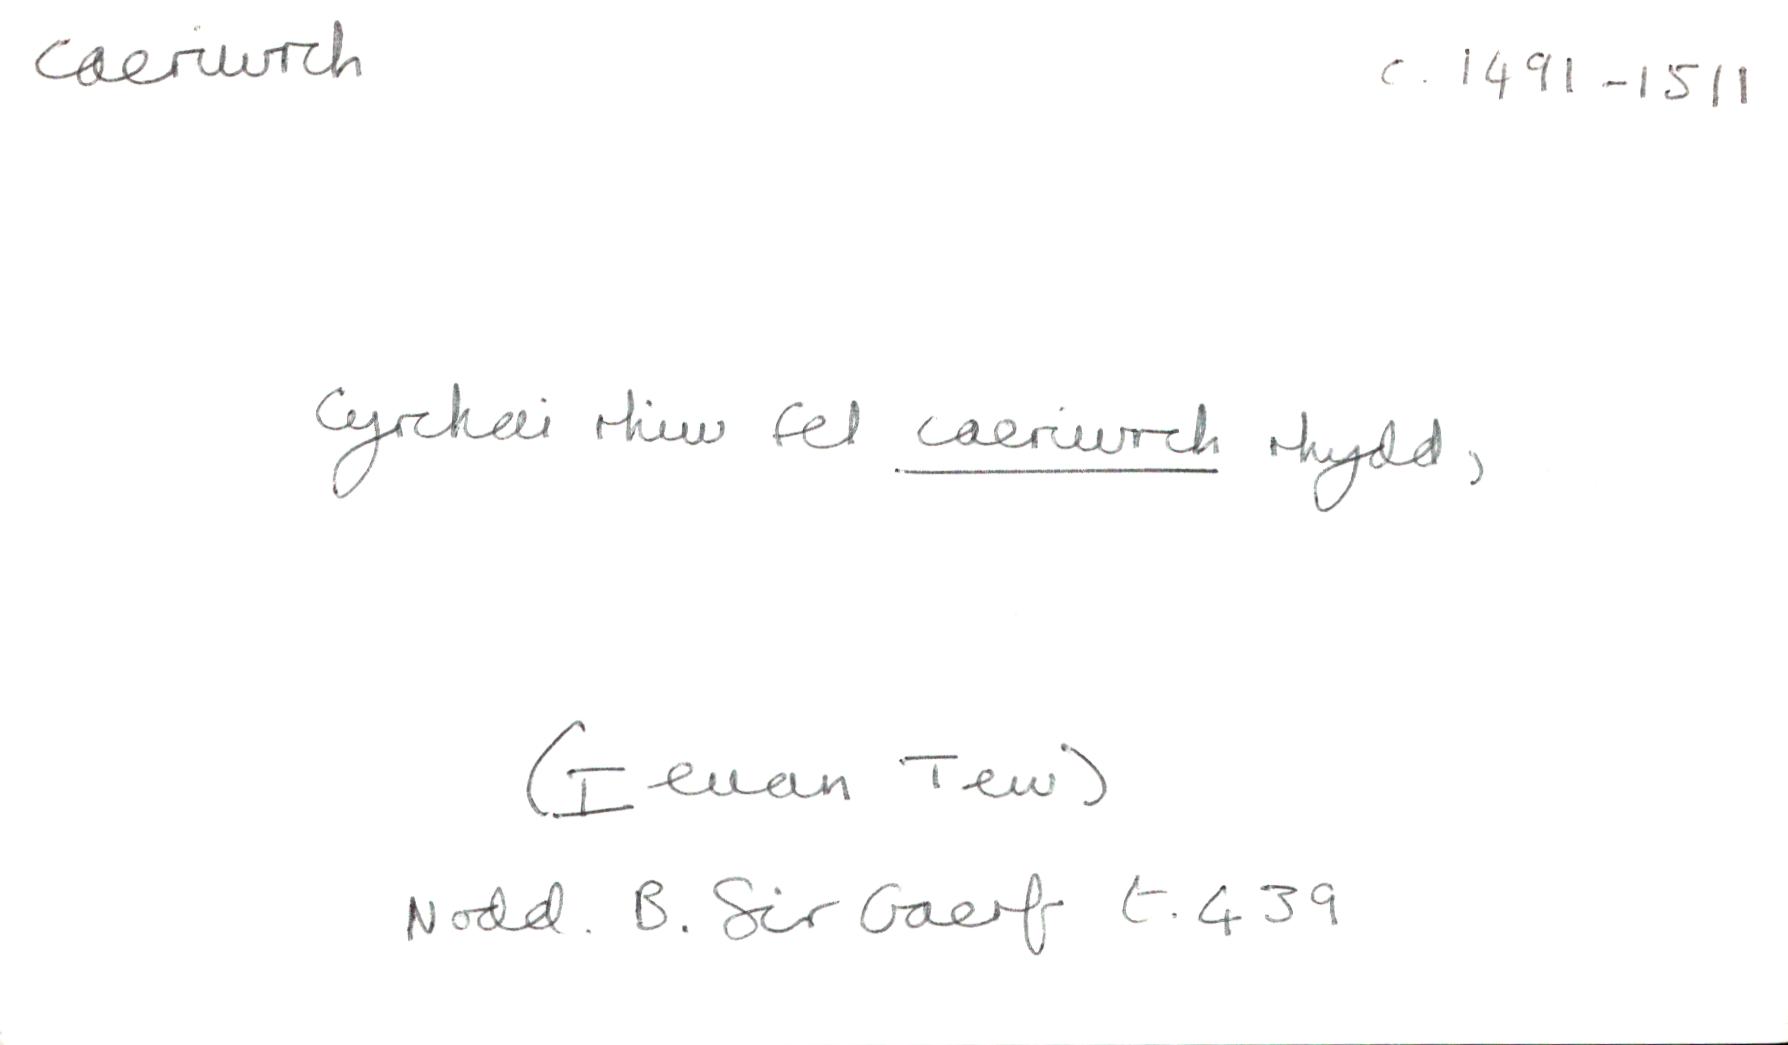 caeriwrch
c. 1491-1511
Cyrchai rhiw fel caeriwrch rhydd,
(Ieuan Tew)
Nodd. B. Sir Gaerf t. 439